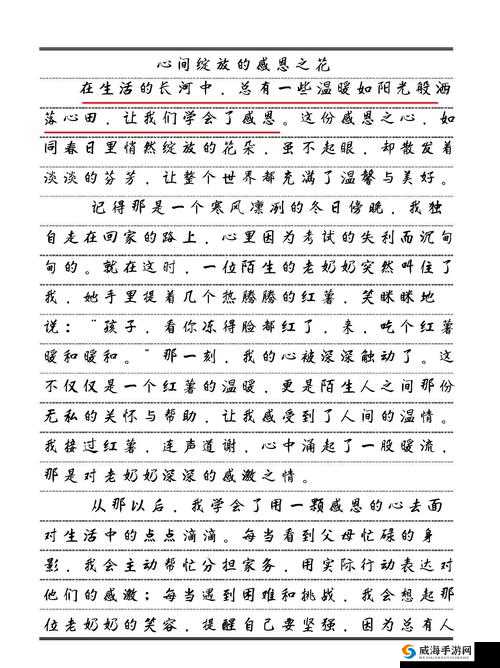 心间绽放的感恩之花
在生活的长河中，总有一些温暖如阳光般洒
落心田，让我们学会了感恩。这份感恩之心，如
同春日里悄然绽放的花朵，虽不起眼，却散发着
淡淡的芬芳，让整个世界都充满了温馨与美好。
记得那是一个寒风凛冽的冬日傍晚，我独
自走在回家的路上，心里因为考试的失利而沉甸
甸的。就在这时，一位陌生的老奶奶突然叫住了
我，她手里提着几个热腾腾的红薯，笑眯眯地
说：“孩子，看你冻得脸都红了，来，吃个红薯
暖和暖和。”那一刻，我的心被深深触动了。这
不仅仅是一个红薯的温暖，更是陌生人之间那份
无私的关怀与帮助，让我感受到了人间的温情。
我接过红薯，连声道谢，心中涌起了一股暖流，
那是对老奶奶深深的感激之情。
从那以后，我学会了用一颗感恩的心去面
对生活中的点点滴滴。每当看到父母忙碌的身
影，我会主动帮忙分担家务，用实际行动表达对
他们的感激；每当遇到困难和挑战，我会想起那
位老奶奶的笑容，提醒自己要坚强，因为总有人
威海手游网